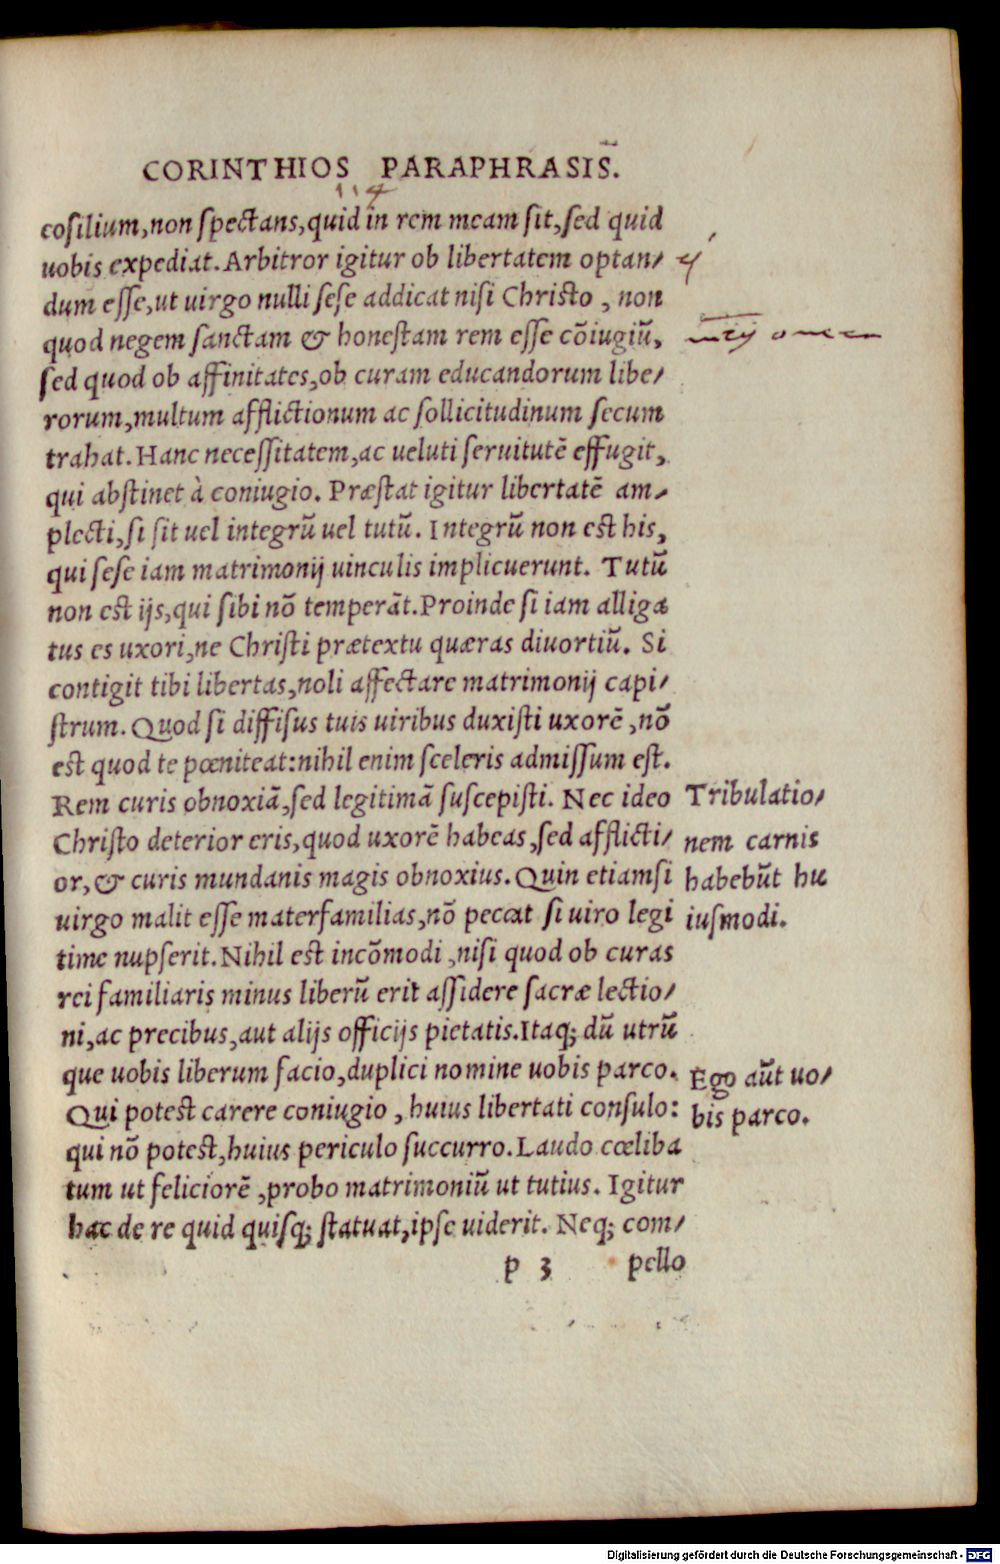 CORINTHIOS PARAPHRASIS.
114
cõsilium, non spectans, quid in rem meam sit, sed quid
uobis expediat. Arbitror igitur ob libertatem optan/
dum esse, ut uirgo nulli sese addicat nisi Christo, non
quod negem sanctam & honestam rem esse cõiugiũ,
sed quod ob affinitates, ob curam educandorum libe/
rorum, multum afflictionum ac sollicitudinum secum
trahat. Hanc necessitatem, ac ueluti seruitutẽ effugit,
qui abstinet à coniugio. Præstat igitur libertatẽ am/
plecti, si sit uel integrũ uel tutũ. Integrũ non est his,
qui sese iam matrimonij uinculis implicuerunt. Tutũ
non est ijs, qui sibi nõ temperãt. Proinde si iam alliga
tus es uxori, ne Christi prætextu quæras diuortiũ. Si
contigit tibi libertas, noli affectare matrimonij capi/
strum. Quod si diffisus tuis uiribus duxisti uxorẽ, nõ
est quod te pœniteat: nihil enim sceleris admissum est.
Rem curis obnoxiã, sed legitimã suscepisti. Nec ideo
Christo deterior eris, quod uxorẽ habeas, sed afflicti/
or, & curis mundanis magis obnoxius. Quin etiamsi
uirgo malit esse materfamilias, nõ peccat si uiro legi
time nupserit. Nihil est incõmodi, nisi quod ob curas
rei familiaris minus liberũ erit assidere sacræ lectio/
ni, ac precibus, aut alijs officijs pietatis. Itaq; dũ utrũ
que uobis liberum facio, duplici nomine uobis parco.
Qui potest carere coniugio, huius libertati consulo:
qui nõ potest, huius periculo succurro. Laudo cœliba
tum ut feliciorẽ, probo matrimoniũ ut tutius. Igitur
hac de re quid quisq; statuat, ipse uiderit. Neq; com/
p 3 pello
Tribulatio/
nem carnis
habebũt hu
iusmodi.
Ego aũt uo/
bis parco.
Digitalisierung gefördert durch die Deutsche Forschungsgemeinschaft - DFG